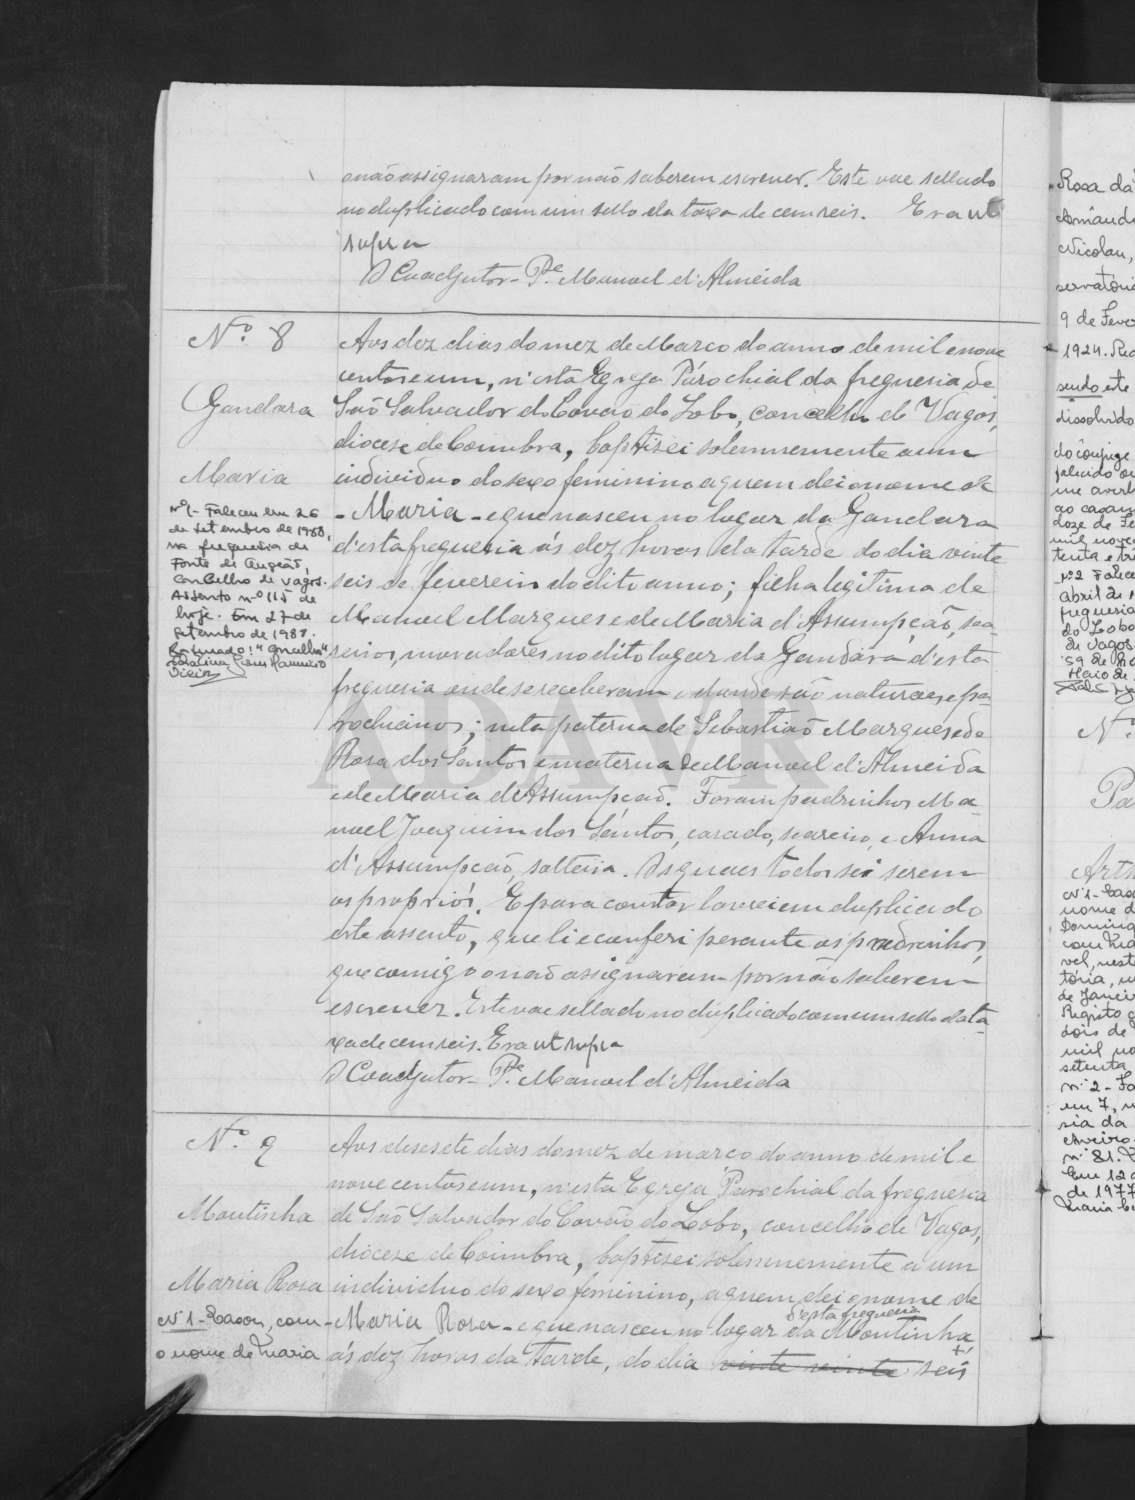 e não assignaram por não saberem escrever. Este vae sellado
no duplicado com um sello da taxa de cem reis. Era ut
supra
O Coadjutor - P.e Manuel d'Almeida
N.º 8
Gandara
Maria
Nº 1 - Faleceu em 26
de setembro de 1988,
na freguesia de
Fonte de Angeão,
Concelho de Vagos.
Assento nº 115 de
hoje. Em 27 de
Setembro de 1988.
Aos dez dias do mez de Março do anno de mil e nove
centos e um, n'esta Egreja Parochial da freguesia de
São Salvador do Covão do Lobo, concelho de Vagos,
diocese de Coimbra, baptisei solemnemente a um
individuo do sexo feminino a quem dei o nome de
- Maria - e que nasceu no logar da Gandara
d'esta freguesia ás dez horas da tarde do dia vinte
seis de fevereiro do dito anno; filha legitima de
Manuel Marques e de Maria d'Assumpção, sea-
reiros, moradores no dito logar da Gandara d'esta
freguesia onde se receberam e donde são naturaes e pa-
rochianos; neta paterna de Sebastião Marques e de
Rosa dos Santos e materna de Manuel d'Almeida
e de Maria d'Assumpção. Foram padrinhos Ma-
nuel Joaquim dos Santos, casado, seareiro, e Anna
d'Assumpção, solteira. Os quaes todos sei serem
os proprios. E para constar lavrei em duplicado
este assento, que li e conferi perante os padrinhos,
que comigo o não assignaram por não saberem
escrever. Este vae sellado no duplicado com um sello da ta-
xa de cem reis. Era ut supra
O Coadjutor - P.e Manuel d'Almeida
N.º 9
Moutinha
Maria Rosa
Nº 1 - Casou, com
o nome de Maria
Aos desesete dias do mez de março do anno de mil e
nove centos e um, n'esta Egreja Parochial da freguesia
de São Salvador do Covão do Lobo, concelho de Vagos,
diocese de Coimbra, baptisei solemnemente a um
individuo do sexo feminino, a quem dei o nome de
d'esta freguesia
- Maria Rosa - e que nasceu no logar da Moutinha,
ás dez horas da tarde, do dia vinte vinte seis
Rosa da
Nicolau,
9 de Feve
1924.
sendo este
dissolvido
do cônjuge
ao casam
doze de Fe
mil nove
Nº 2 Falece
Abril de 1
freguesia
do Lobo
de Vagos
Maio de
Nº
Pa
Artu
Nº 1 - Casou
nome d
Doming
vel, nesta
tória,
de Janeir
Registo
dois de
mil no
setenta
nº 2 - Fa
em 7,
sia da
Aveiro
nº 81.
Em 12 d
de 1977
ADAVR